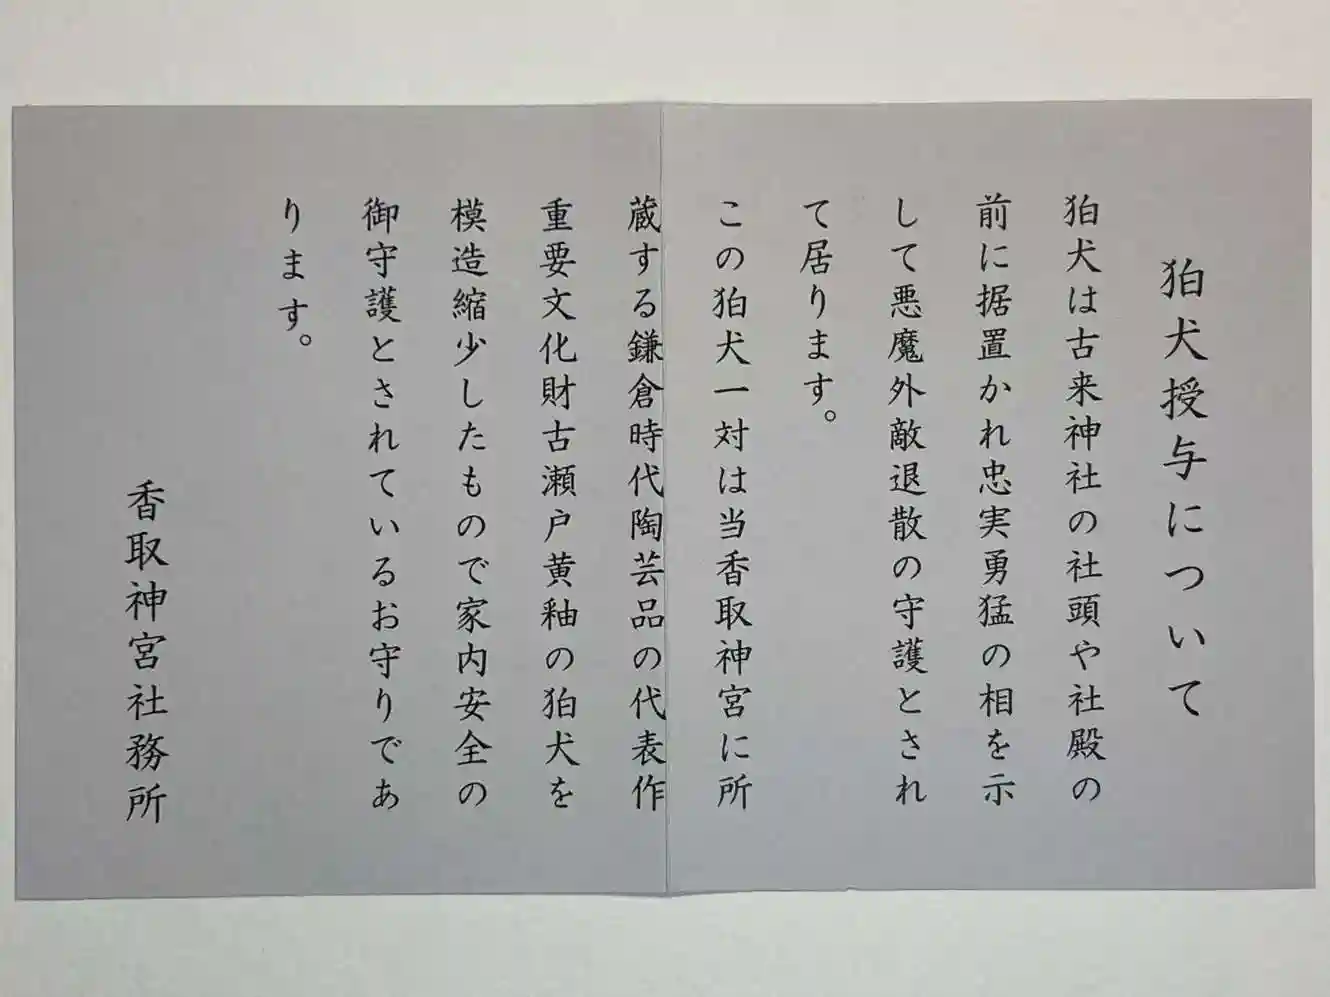 狛犬授与について
狛犬は古来神社の社頭や社殿の
前に据置かれ忠実勇猛の相を示
して悪魔外敵退散の守護とされ
て居ります。
この狛犬一対は当香取神宮に所
蔵する鎌倉時代陶芸品の代表作
重要文化財古瀬戸黄釉の狛犬を
模造縮少したもので家内安全の
御守護とされているお守りであ
ります。
香取神宮社務所